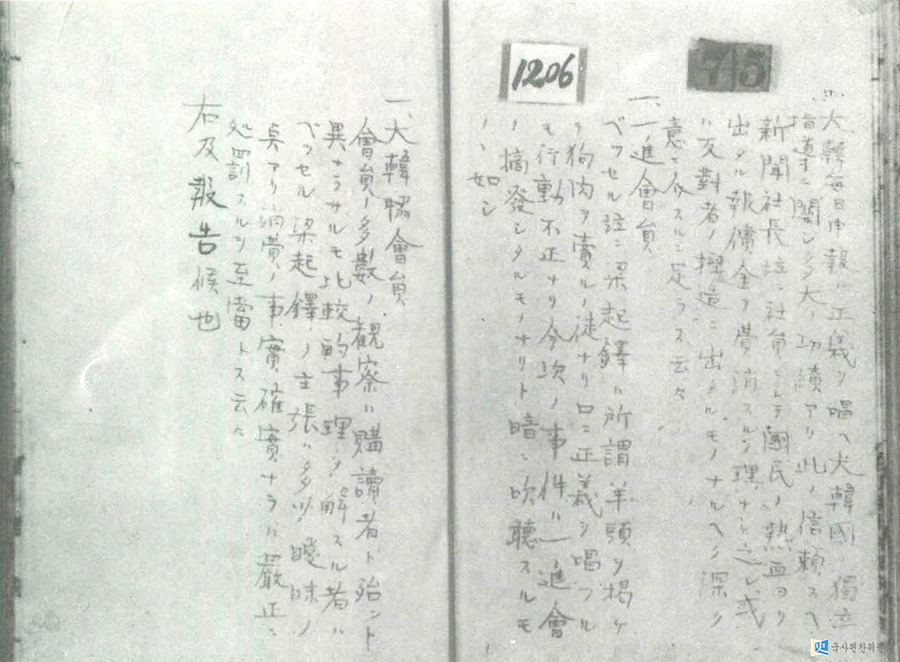 75
1206
大韓毎日申報ハ正義ヲ唱ヘ大韓國ノ獨立
指導ニ関シ多大ノ功績アリ此ノ信頼スヘ
新聞社長並ニ社員ニシテ國民ノ熱血ヨリ
出タル報償金ヲ費消スルノ理ナト之レ或
ハ反對者ノ捏造ニ出タルモノナルヘシ深ク
意ニ介スルニ足ラス云々
一、一進會員
ベツセル並ニ梁起鐸ハ所謂羊頭ヲ掲ケ
狗肉ヲ賣ルノ徒ナリ口ニ正義ヲ唱フル
モ行動不正ナリ今次ノ事件ハ一進會
ノ摘發シタルモノナリト暗ニ吹聴スルモ
ノヽ如シ
一、大韓協會員
會員ノ多數ノ観察ハ購讀者ト殆ント
異ナラサルモ比較的事理ヲ解スル者ハ
ベツセル梁起鐸ノ主張ハ多少曖昧ノ
点アリ消費ノ事實確實ナラハ嚴正ニ
処罰スルヲ至當トス云々
右及報告候也
국사편찬위원회